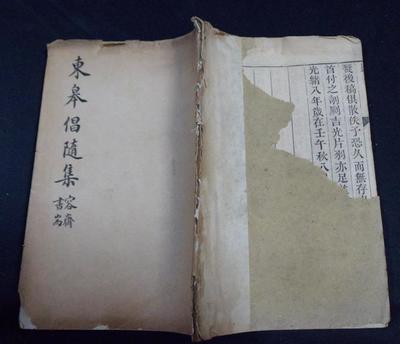 東皋倡隨集
容齋
書耑
燹後稿俱散佚予恐久而無存
首付之剞劂吉光片羽亦足
光緒八年歲在壬午秋八